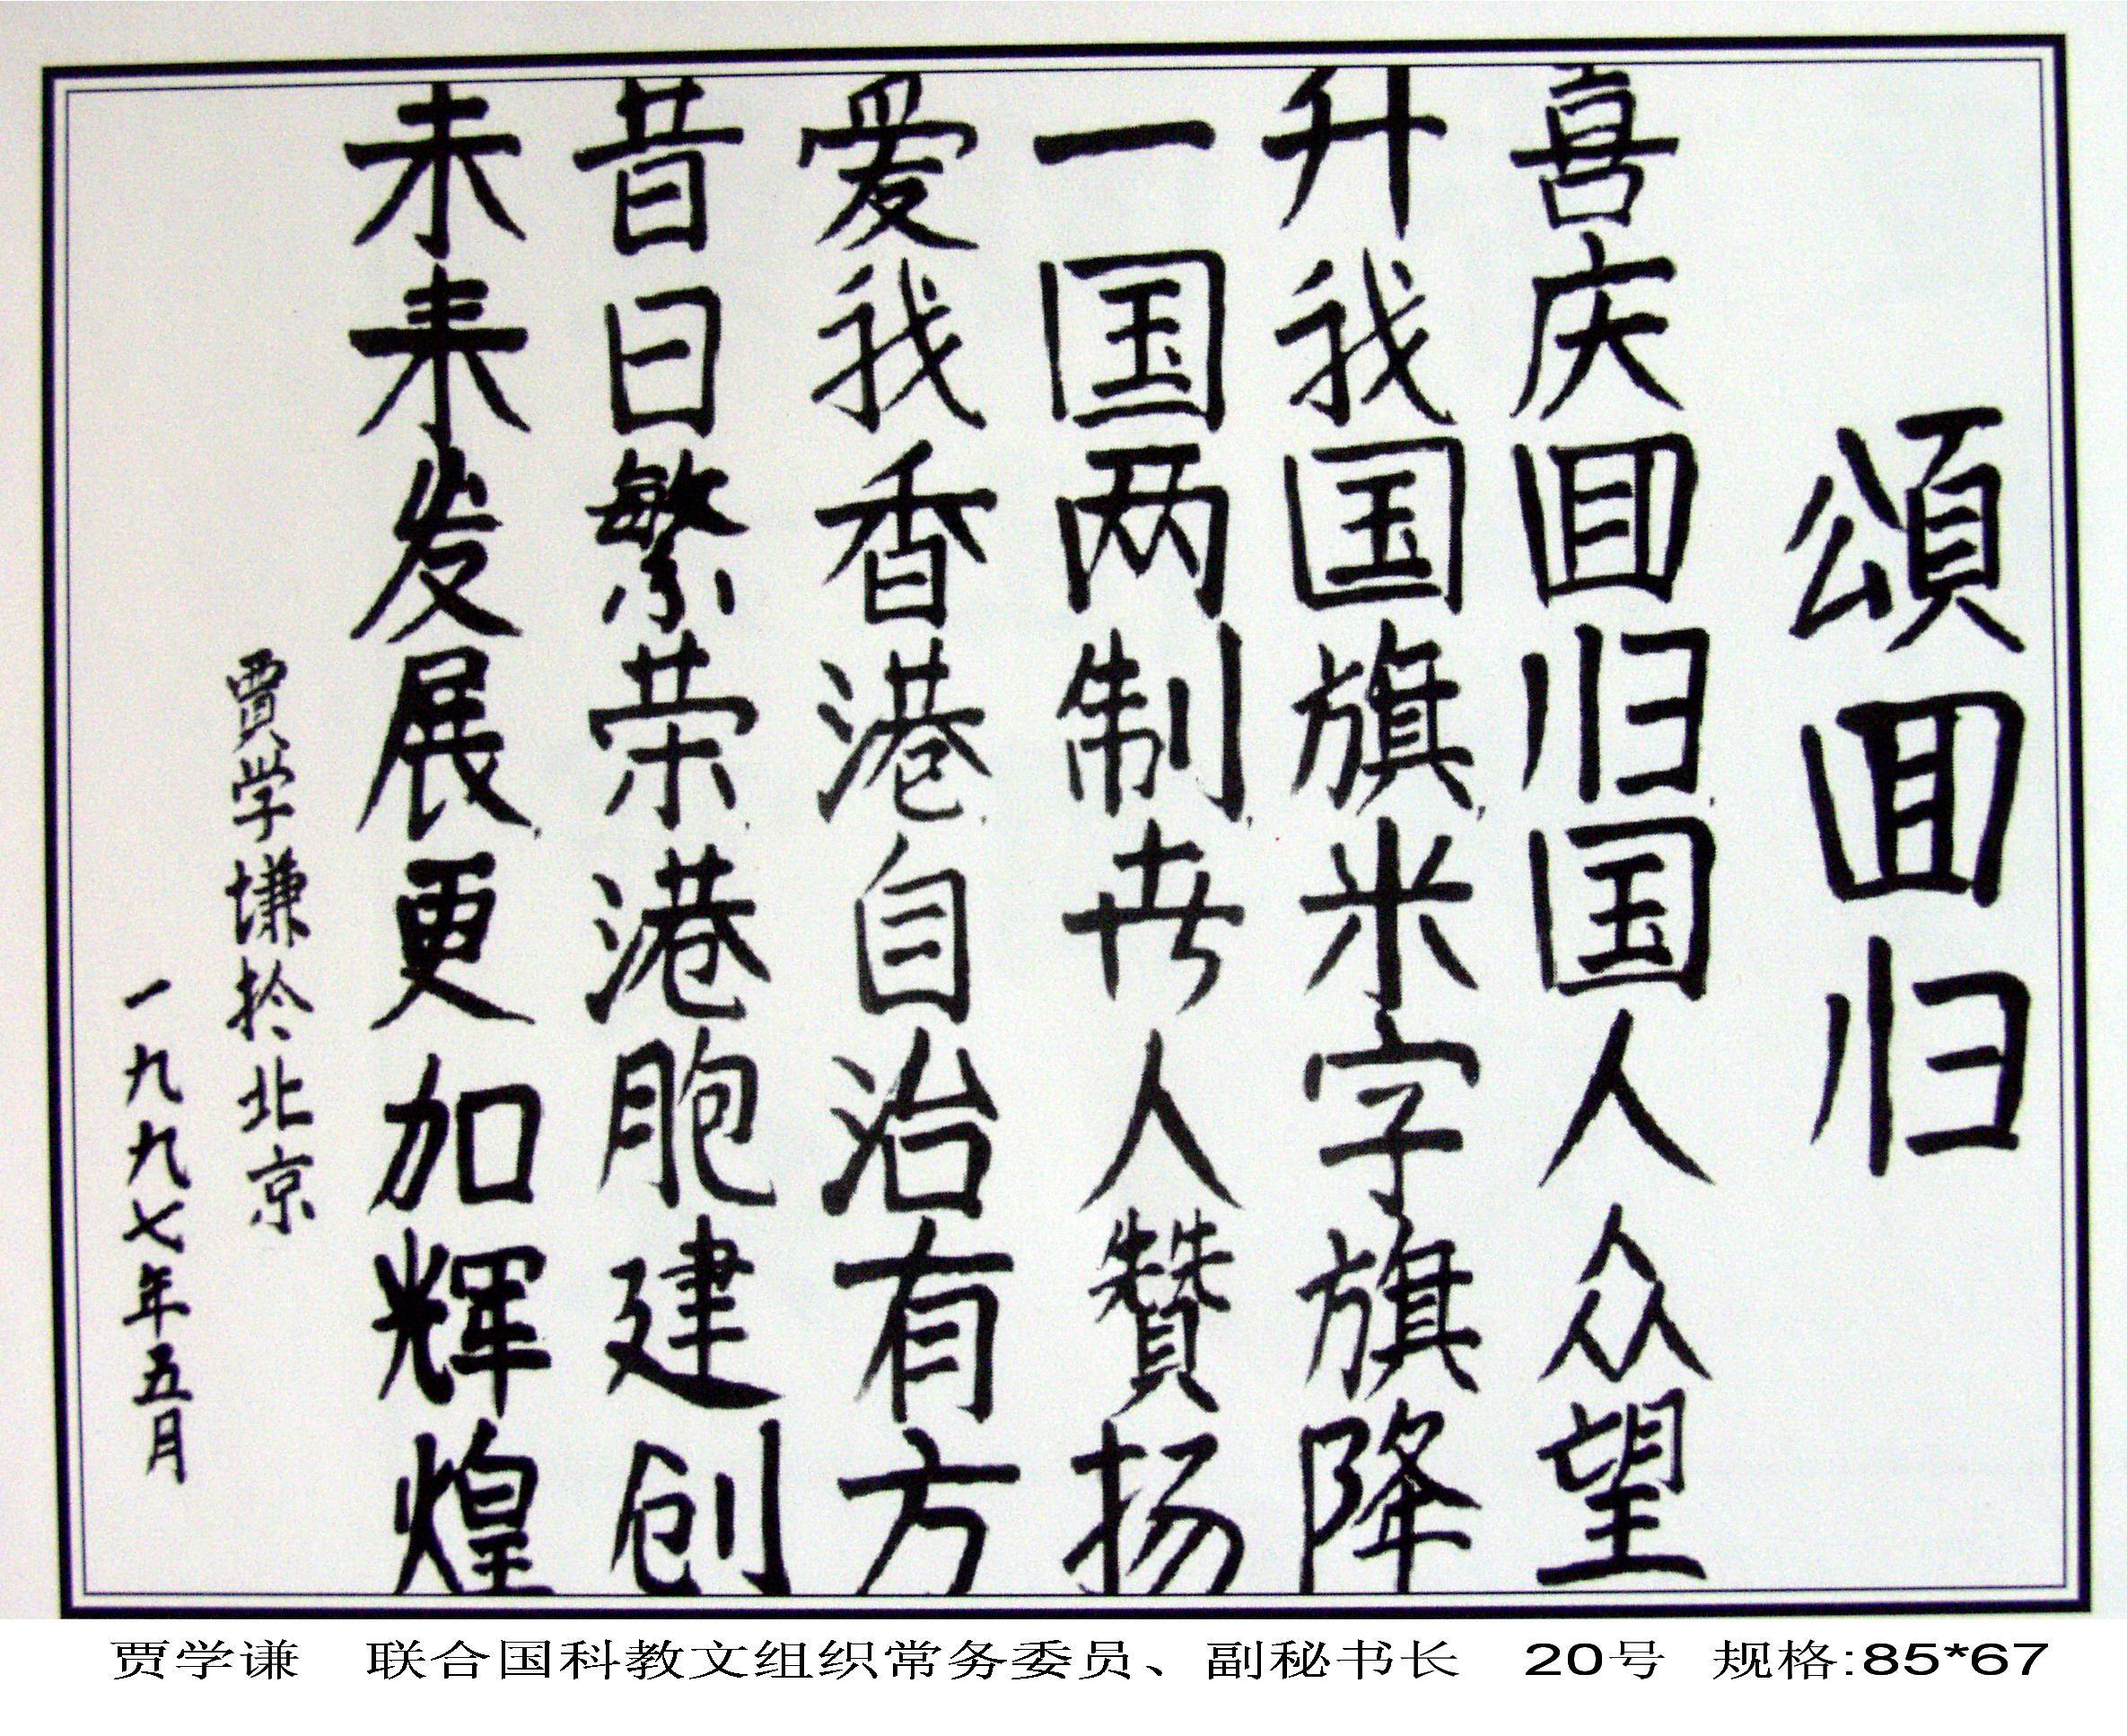 頌囬归
喜庆囬归国人众望
升我国旗米字旗降
一国两制世人赞扬
爱我香港自治有方
昔日繁荣港胞建创
未来发展更加辉煌
贾学谦於北京
一九九七年五月
贾学谦 联合国科教文组织常务委员、副秘书长 20号 规格:85*67